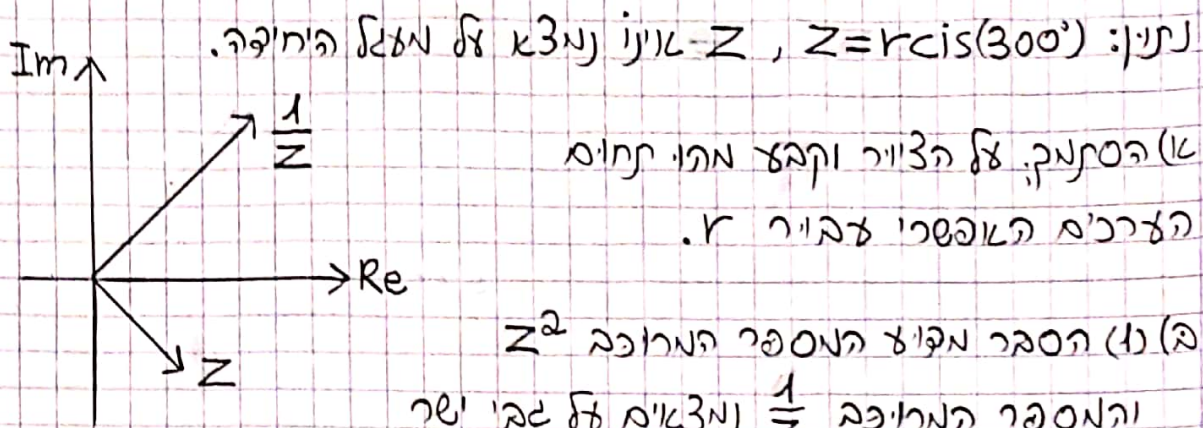 נתון: z=rcis(300°) , z אינו נמצא על מעגל היחידה.
Im
1/z
Re
z
א) הסתמך על הציור וקבע מהו תחום
הערכים האפשרי עבור r.
ב) (1) הסבר מדוע המספר המרוכב z²
והמספר המרוכב 1/ נמצאים על גבי ישר